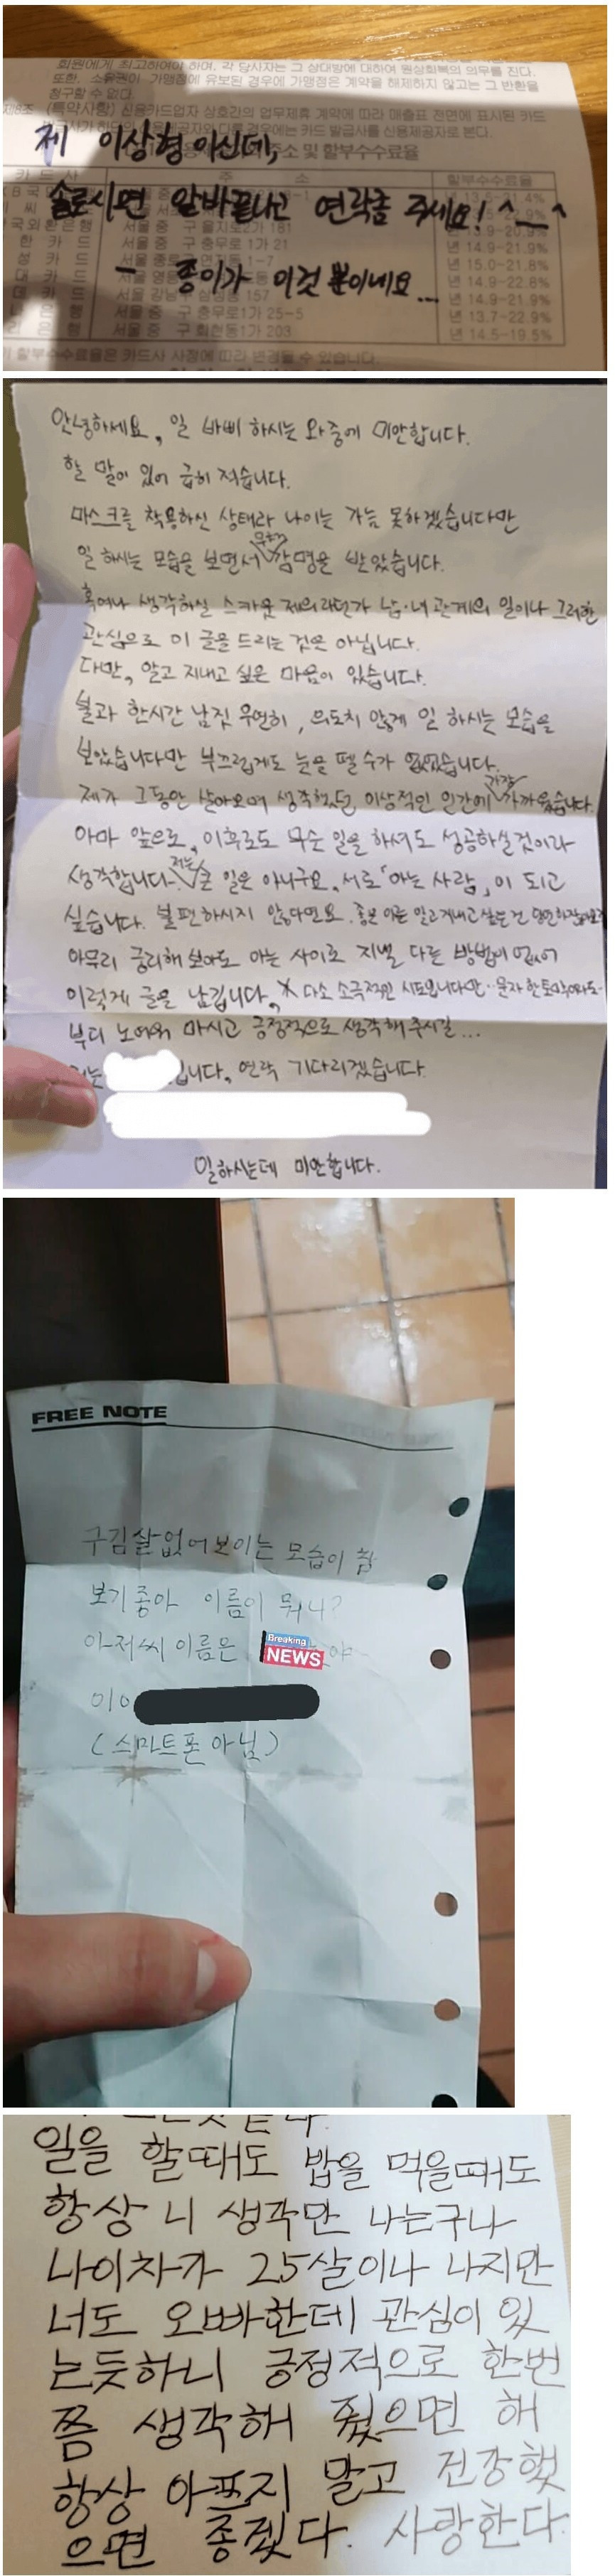 회원에게 최고하여야 하며, 각 당사자는 그 상대방에 대하여 원상회복의 의무를 진다.
또한, 소유권이 가맹점에 유보된 경우에 가맹점은 계약을 해제하지 않고는 그 반환을
청구할 수 없다.
(특약사항) 신용카드업자 상호간의 업무제휴 계약에 따라 매출표 전면에 표시된 카드
신용제공자와 다를 경우에는 카드 발급사를 신용제공자로 본다.
제 이상형 아신데,
주소 및 할부수수료율
카 드 사 주 소 할부수수료율
솔로시면 알바끝나고 연락좀 주세요! ^__^
국외환은행 서울 중구 을지로2가 181
한 카 드 서울 중 구 충무로 1가 21 년 14.9~21.9%
성 카 드 년 15.0~21.8%
- 종이가 이것 뿐이네요...
대 카 드 년 14.9~22.8%
157 년 14.9~21.9%
은 행 서울 중 구 충무로1가 25-5 년 13.7~22.9%
은 행 서울 중 구 회현동1가 203 년 14.5~19.5%
할부수수료율은 카드사 사정에 따라 변경될 수 있습니다.
안녕하세요, 일 바삐 하시는 와중에 미안합니다.
할 말이 있어 급히 적습니다.
마스크를 착용하신 상태라 나이는 가늠 못하겠습니다만
일 하시는 모습을 보면서 감명을 받았습니다.
혹여나 생각하실 스카웃 제의라던가 남·녀 관계의 일이나 그러한
관심으로 이 글을 드리는 것은 아닙니다.
다만, 알고 지내고 싶은 마음이 있습니다.
불과 한시간 남짓 우연히, 의도치 않게 일 하시는 모습을
보았습니다만 부끄럽게도 눈을 뗄 수가 없었습니다.
제가 그동안 살아오며 생각했던 이상적인 인간에 가장 가까웠습니다.
아마 앞으로, 이후로도 무슨 일을 하셔도 성공하실것이라
생각합니다. 저는 큰 일은 아니구요, 서로 「아는 사람」이 되고
싶습니다. 불편하시지 않다면요.
아무리 궁리해 보아도 아는 사이로 지낼 다른 방법이 없어
이렇게 글을 남깁니다. 다소 소극적인 시도입니다만.. 문자 한 토막이라도..
부디 노여워 마시고 긍정적으로 생각해 주시길...
저는 입니다. 연락 기다리겠습니다.
일하시는데 미안합니다.
FREE NOTE
구김살없어보이는 모습이 참
보기좋아 이름이 뭐니?
아저씨 이름은 야
Breaking
NEWS
010
(스마트폰 아님)
일을 할때도 밥을 먹을때도
항상 니 생각만 나는구나
나이차가 25살이나 나지만
너도 오빠한데 관심이 있
는듯하니 긍정적으로 한번
쯤 생각해 줬으면 해
항상 아프지 말고 건강했
으면 좋겠다. 사랑한다.